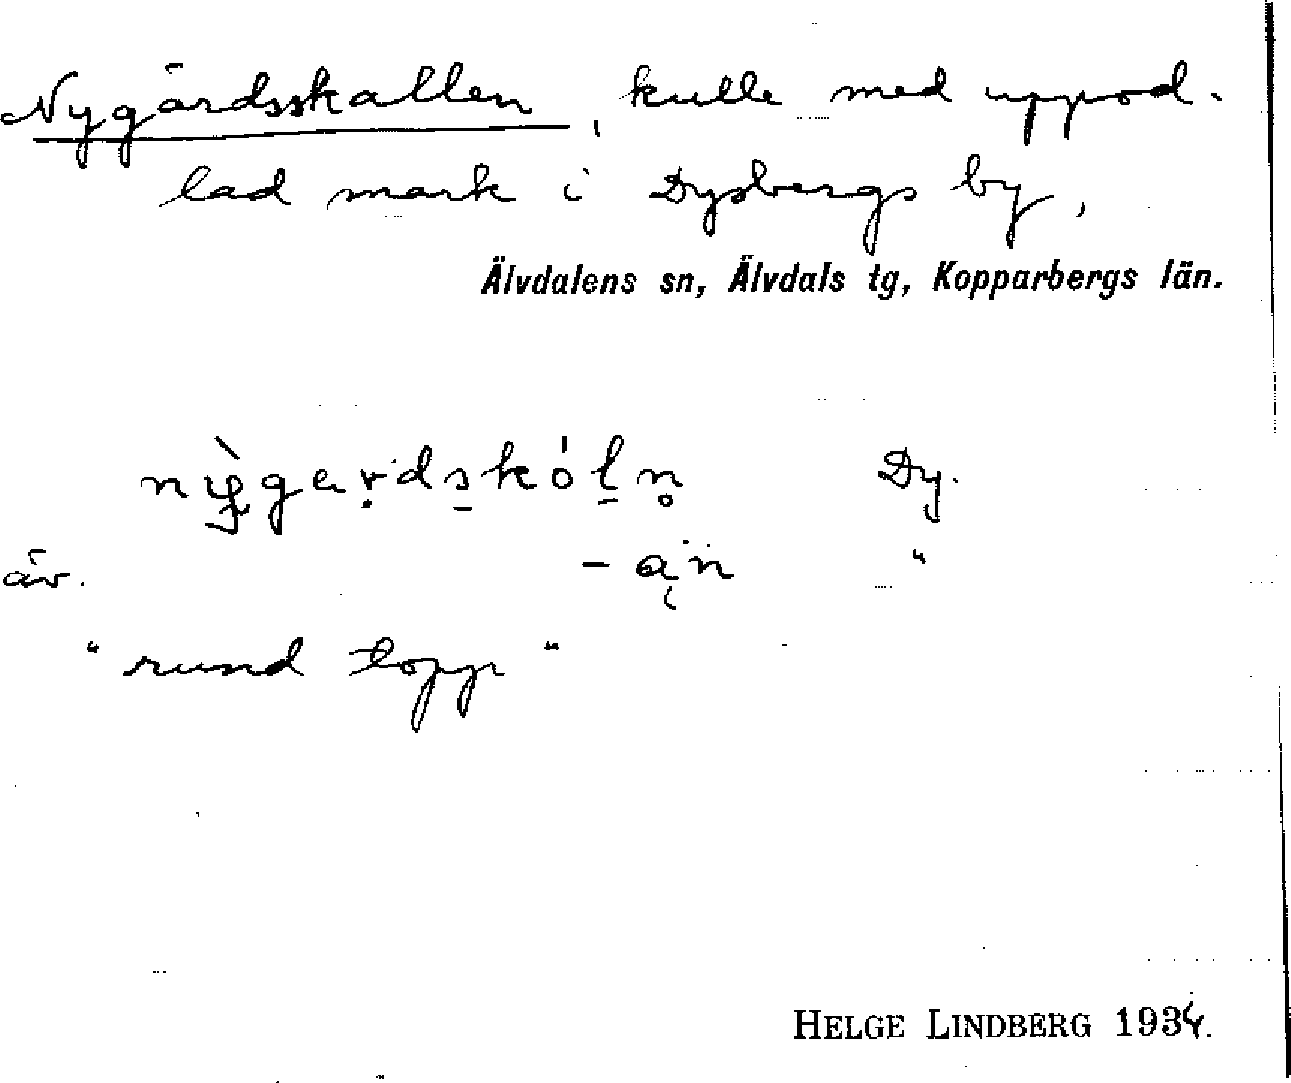 Nygårdsskallen, kulle med uppod-
lad mark i Dysbergs by,
Älvdalens sn, Älvdals tg, Kopparbergs län.
nỳgạṛds̱kól̠n̥ Dy.
äv. -a̜n "
"rund topp"
HELGE LINDBERG 1934.